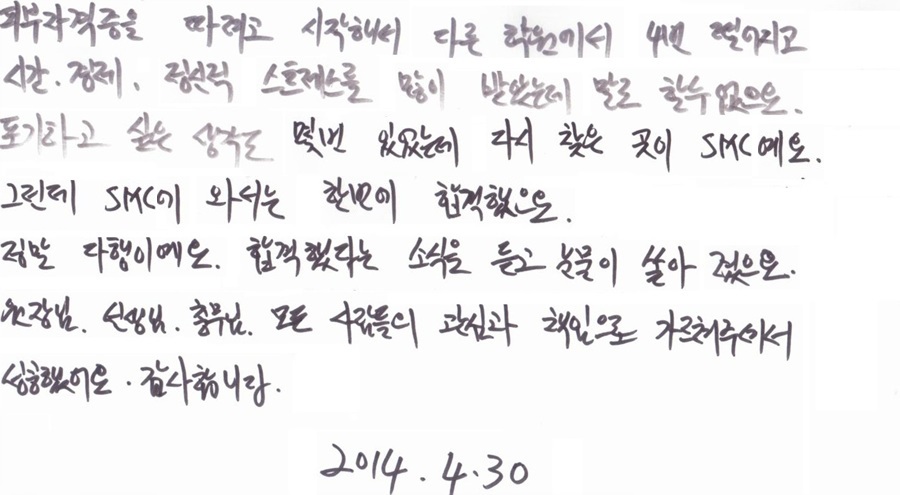 피부자격증을 따려고 시작해서 다른 학원에서 4번 떨어지고
시간. 경제. 정신적 스트레스를 많이 받았는데 말로 할수 없으요.
포기하고 싶은 생각도 몇번 있었는데 다시 찾은 곳이 SMC예요.
그런데 SMC에 와서는 한번에 합격했으요.
정말 다행이예요. 합격했다는 소식을 듣고 눈물이 쏟아 졌으요.
원장님. 선생님. 총무님. 모든 사람들의 관심과 책임으로 가르쳐주셔서
성공했어요. 감사합니다.
2014. 4.30